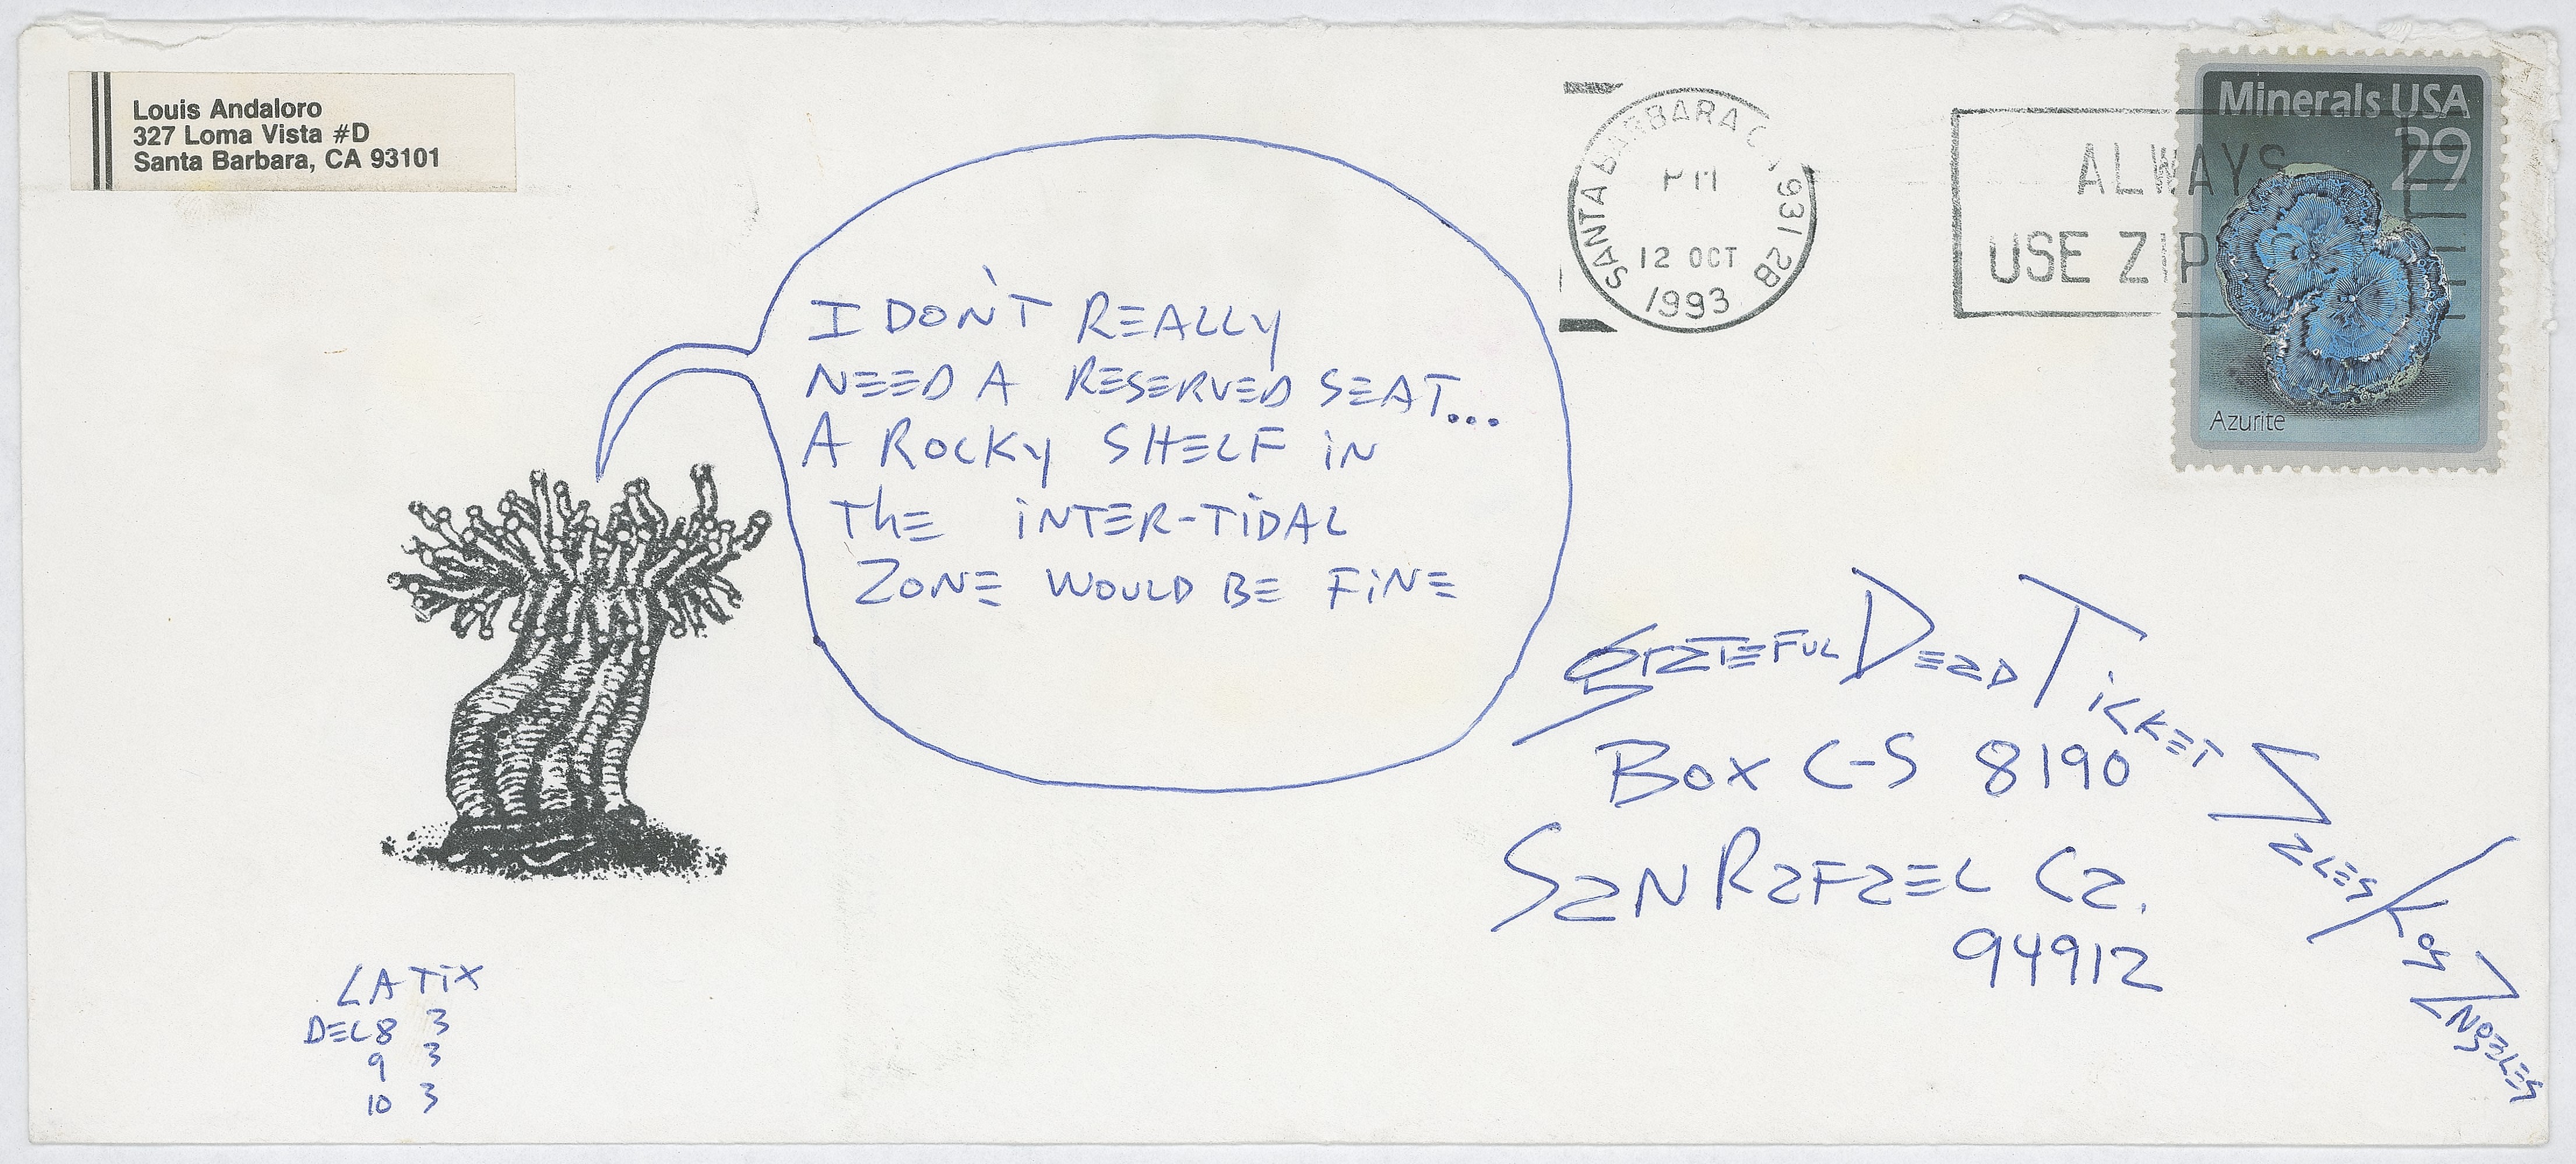 Louis Andaloro
327 Loma Vista #D
Santa Barbara, CA 93101
SANTA BARBARA CA 931 2B
PM
12 OCT
1993
ALWAYS
USE ZIP
Minerals USA
29
Azurite
I DON'T REALLY
NEED A RESERVED SEAT...
A ROCKY SHELF iN
ThE iNTER-TiDAL
ZONE WOULD BE FiNE
GraTEFUL DEaD TiCKET SaLES/Los ANgELES
BOX C-S 8190
SaN RaFaEL Ca.
94912
LA TiX
DEC 8 3
9 3
10 3